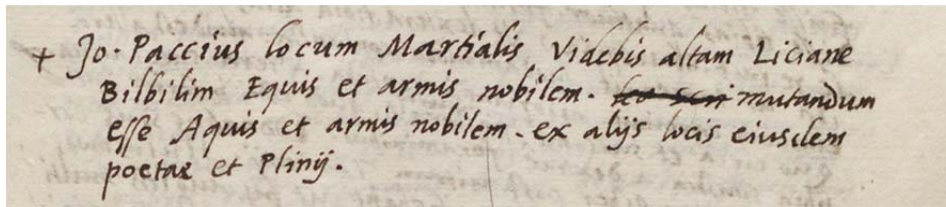 + Jo. Paccius locum Martialis Videbis altam Liciane
Bilbilim Equis et armis nobilem. mutandum
esse Aquis et armis nobilem. ex alijs locis eiusdem
poetae et Plinij.